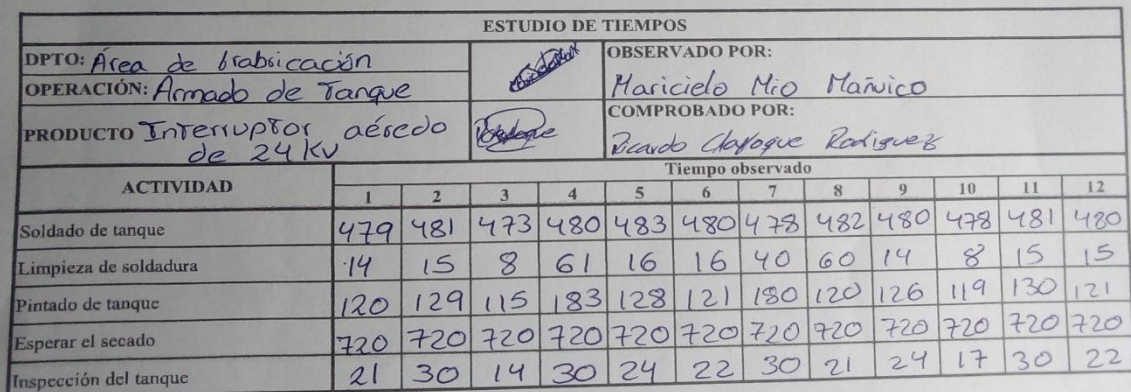 ESTUDIO DE TIEMPOS
DPTO: Área de brabricación
OPERACIÓN: Armado de Tanque
PRODUCTO Interruptor aéredo
de 24 KV
OBSERVADO POR:
Maricielo Mio Mañuico
COMPROBADO POR:
Ricardo Clafoque Rodriguez
ACTIVIDAD Tiempo observado
1 2 3 4 5 6 7 8 9 10 11 12
Soldado de tanque 479 481 473 480 483 480 478 482 480 478 481 480
Limpieza de soldadura 14 15 8 61 16 16 40 60 14 8 15 15
Pintado de tanque 120 129 115 183 128 121 180 120 126 119 130 121
Esperar el secado 720 720 720 720 720 720 720 720 720 720 720 720
Inspección del tanque 21 30 14 30 24 22 30 21 24 17 30 22